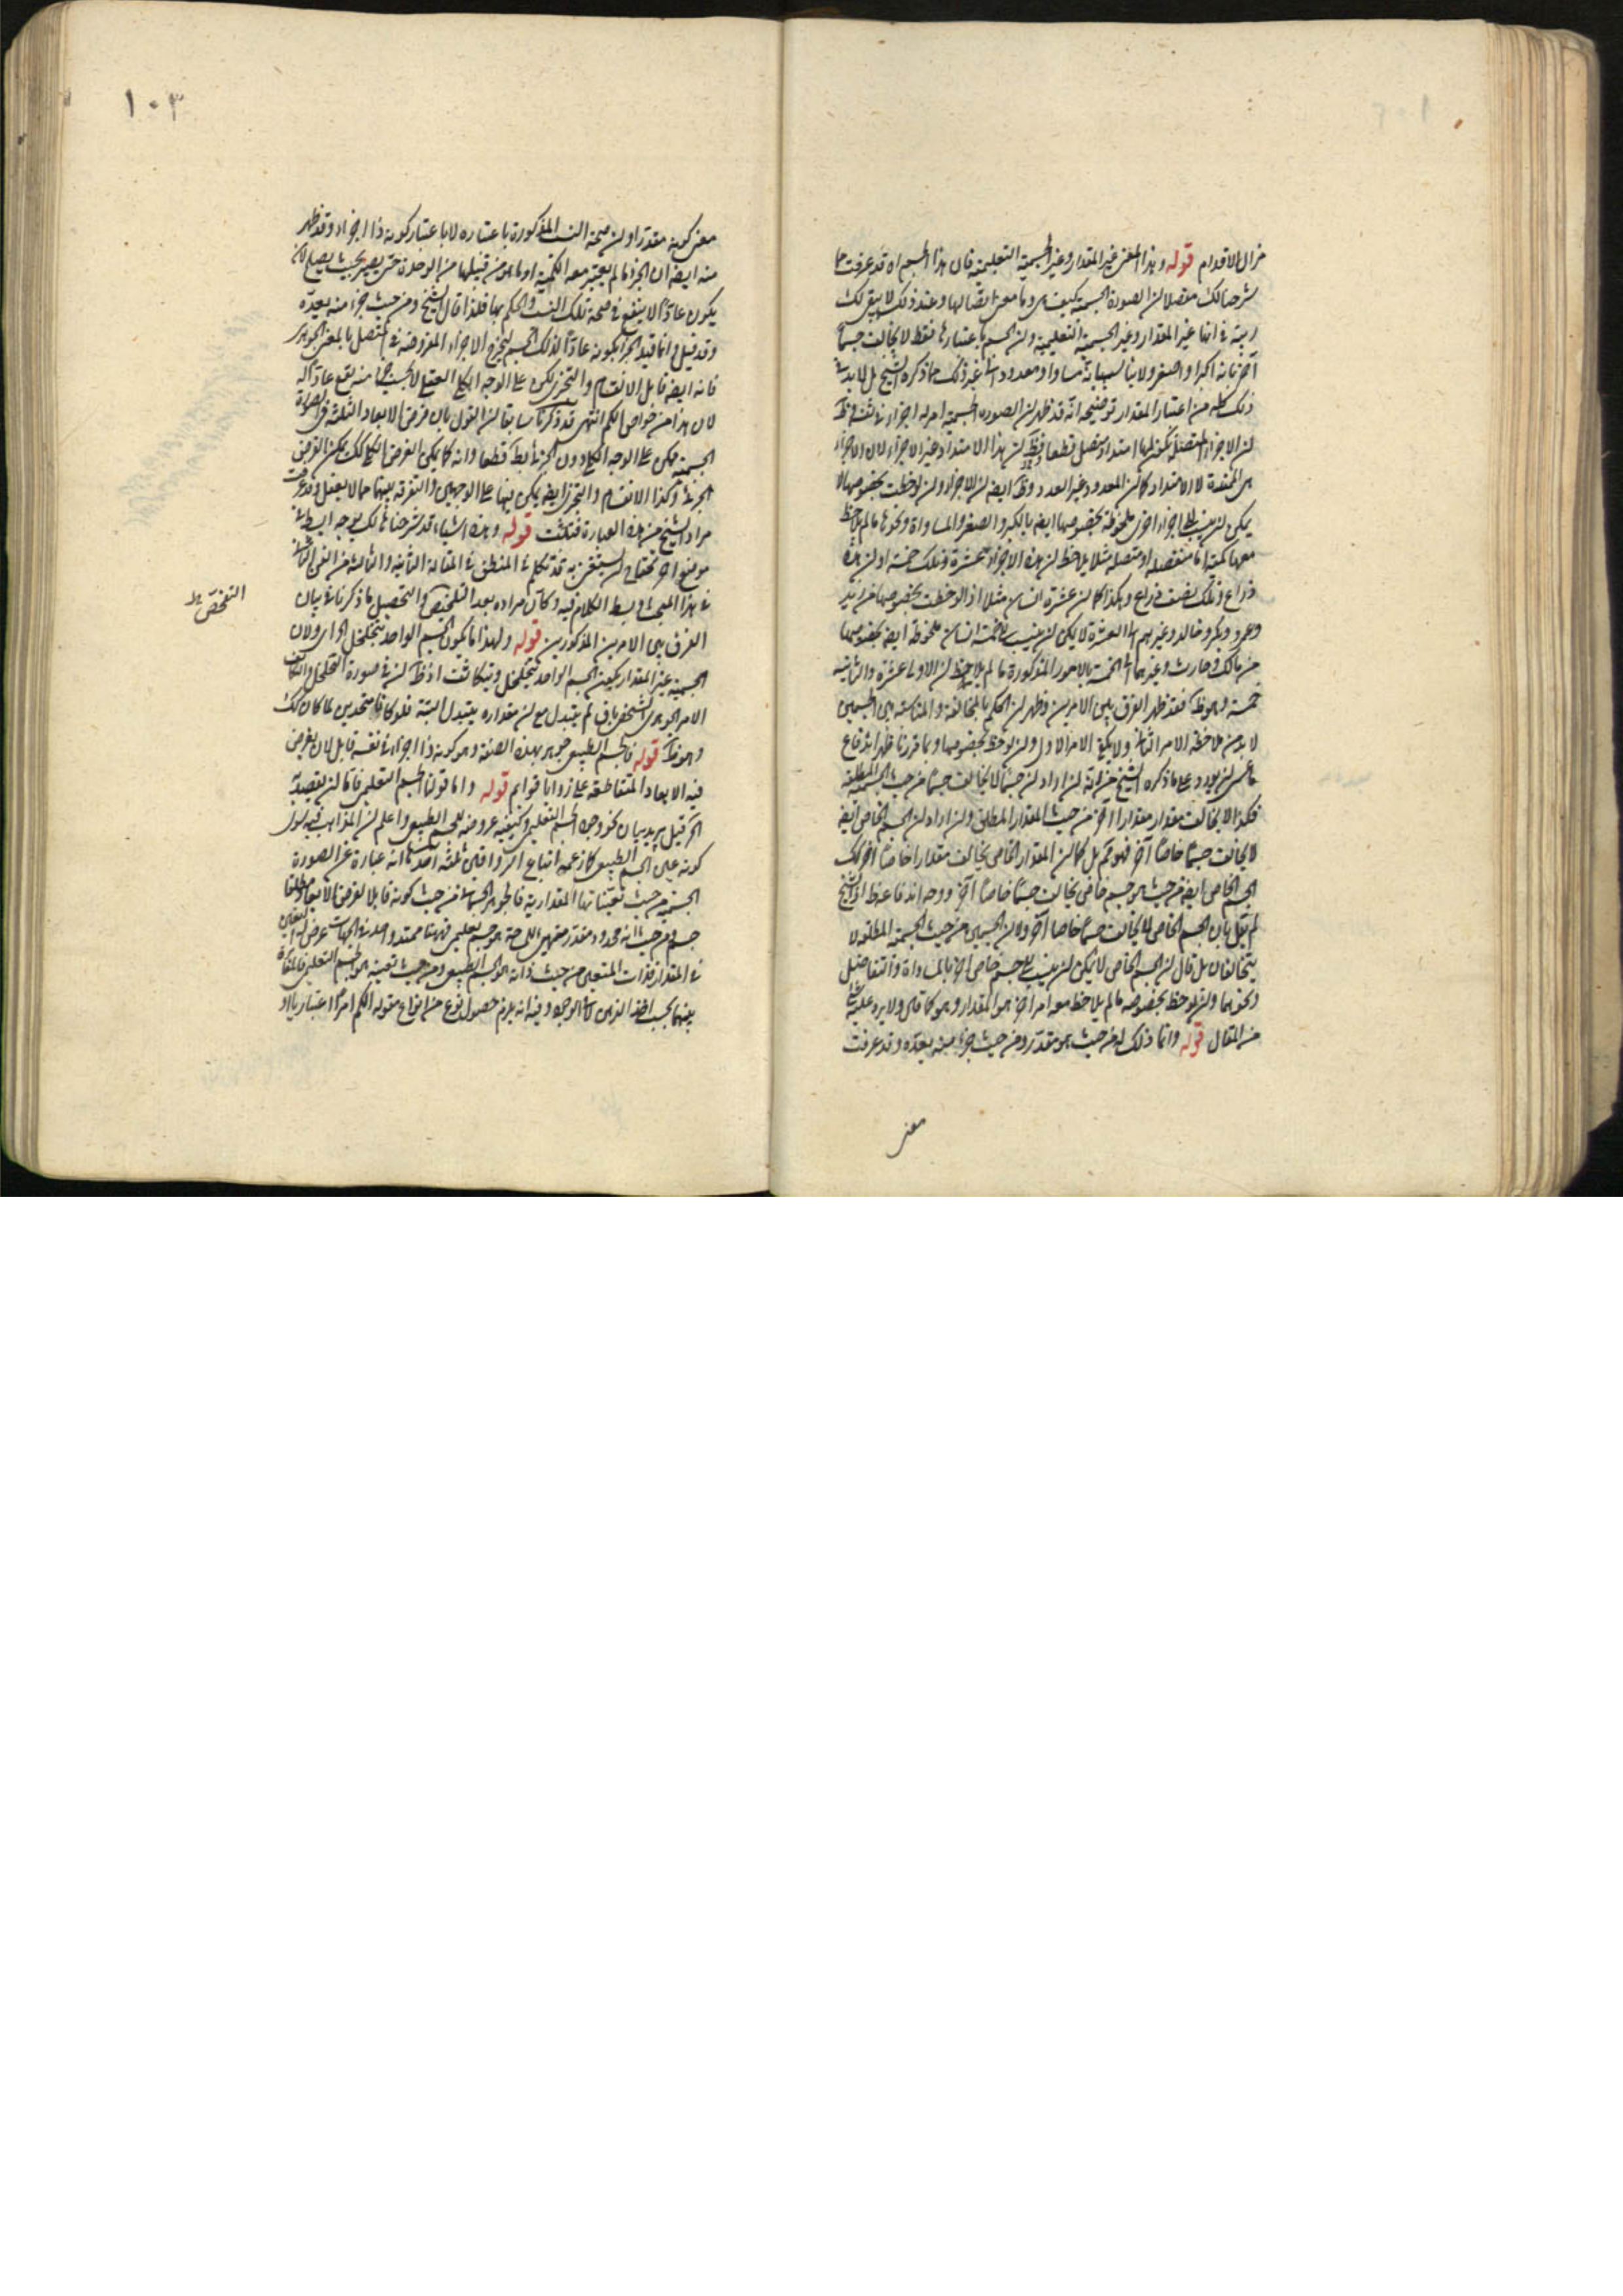 مزال الاقدام قوله وهذا المعنى غير المقدار وغير الجسمية التعليمية فان هذا الجسم اه قد عرفت مما
شرحنا لك مفصلا ان الصورة الجسمية كيف هي وما معنى اتصالها وعند ذلك لا يبقى لك
ريبة في انها غير المقدار وغير الجسمية التعليمية وان الجسم باعتبارها فقط لا يخالف جسما
آخر بانه اكبر او اصغر ولا يناسبه بانه مساو او معدود او غير ذلك مما ذكره الشيخ بل لا بد في
ذلك كله من اعتبار المقدار توضيحه انه قد ظهر ان الصورة الجسمية امر له اجزاء في نفسه وظ
ان الاجزاء المتصلة يكون لها امتداد متصل قطعا وظ ان هذا الامتداد غير الاجزاء لان الاجزاء
هي الممتدة لا الامتداد كما ان المعدود غير العدد وظ ايضا ان الاجزاء وان لوحظت بخصوصها لا
يمكن ان ينسب الى اجزاء اخرى ملحوظة بخصوصها ايضا بالكبر والصغر والمساواة ونحوها ما لم يلاحظ
معها كمية اما منفصلة او متصلة مثلا يلاحظ ان هذه الاجزاء عشرة وتلك خمسة او ان هذه
ذراع وتلك نصف ذراع وهكذا كما ان عشرة اناس مثلا اذا لوحظت بخصوصها من زيد
وعمرو وبكر وخالد وغيرهم هذا العشرة لا يمكن ان ينسب الى خمسة اناس ملحوظة ايضا بخصوصها
من مالك وحارث وغيرهما الخمسة بالامور المذكورة ما لم يلاحظ ان الاولى عشرة والثانية
خمسة وهو ظ فقد ظهر الفرق بين الامرين وظهر ان الحكم بالمخالفة والمناسبة بين الجسمين
لا بد من ملاحظة الامر الثاني ولا يكفي الامر الاول وان لوحظ بخصوصها وبما قررنا ظهر اندفاع
ما عسى ان يورد على ما ذكره الشيخ من انه ان اراد ان جسما لا يخالف جسما من حيث الجسمية المطلقة
فكذا لا يخالف مقدار مقدارا آخر من حيث المقدار المطلق وان اراد ان الجسم الخاص ايضا
لا يخالف جسما خاصا آخر فهو مم بل كما ان المقدار الخاص يخالف مقدارا خاصا آخر كذلك
الجسم الخاص ايضا من حيث هو جسم خاص يخالف جسما خاصا آخر ووجه اندفاعه ظ اذ الشيخ
لم يقل بان الجسم الخاص لا يخالف جسما خاصا آخر ولا ان الجسمين من حيث الجسمية المطلقة لا
يتخالفان بل قال ان الجسم الخاص لا يمكن ان ينسب الى جسم خاص آخر بالمساواة والتفاضل
ونحوهما وان لوحظ بخصوصه ما لم يلاحظ معه امر آخر هو المقدار وهو كما قال ولا يرد عليه شيء
من المقال قوله وانما ذلك له من حيث هو مقدر ومن حيث جزء منه يعده وقد عرفت
معنى
١٠٣
معنى كونه مقدرا وان صحة النسب المذكورة باعتباره لا باعتبار كونه ذا اجزاء وقد ظهر
منه ايضا ان الجزء ما لم يعتبر معه الكمية او ما هو من قبيلها من الوحدة حتى يصير بحيث يصلح لان
يكون عادا لا ينفع في صحة تلك النسب والحكم بها فلذا قال الشيخ ومن حيث جزء منه يعده
وقد قيل وانما قيد الجزء بكونه عادا لذلك الجسم ليخرج الاجزاء المفروضة في المتصل بالمعنى الجوهري
فانه ايضا قابل الانقسام والتجزي لكن على الوجه الكلي العقلي لا بحيث جزء ما منه يقع عادا له
لان هذا من خواص الكم انتهى قد ذكرنا سابقا ان القول بان فرض الابعاد الثلثة في الصورة
الجسمية ممكن على الوجه الكلي دون الجزئي بط قطعا وانه كما يمكن الفرض الكلي كذلك يمكن الفرض
الجزئي وكذا الانقسام والتجزي ايضا يمكن فيها على الوجهين والتفرقة بينهما مما لا يعقل وقد عرفت
مراد الشيخ من هذه العبارة فتثبت قوله وهذه اشياء قد شرحناها لك بوجه ابسط في
موضع آخر تحتاج ان تستعين به قد تكلم في المنطق في المقالة الثانية والثالثة من الفن الثاني
في هذا المبحث وبسط الكلام فيه وكان مراده بعد التلخيص والتحصيل ما ذكرنا في بيان
الفرق بين الامرين المذكورين قوله ولهذا ما يكون الجسم الواحد يتخلخل اه اي ولان
الجسمية غير المقدار يكون الجسم الواحد يتخلخل ويتكاثف اذ ظ ان في صورة التخلخل والتكاثف
الامر الجوهري الشخصي باق لم يتبدل مع ان مقداره يتبدل البتة فلو كانا متحدين لما كان كذلك
وهو ظ قوله فالجسم الطبيعي جوهر بهذه الصفة وهو كونه ذا اجزاء في نفسه قابل لان يفرض
فيه الابعاد المتقاطعة على زوايا قوائم قوله واما قولنا الجسم التعليمي فاما ان يقصد به
اه قيل يريد بيان نحو وجود الجسم التعليمي وكيفية عروضه للجسم الطبيعي واعلم ان المذاهب فيه سوى
كونه عين الجسم الطبيعي كما زعمه اتباع الرواقيين ثلثة احدها انه عبارة عن الصورة
الجسمية من حيث تعيناتها المقدارية فالجوهر الجسماني من حيث كونه قابلا لفرض الابعاد مطلقا
جسم ومن حيث انه محدود مقدر متعين المساحة هو جسم تعليمي فههنا ممتد واحد في الجهات عرض له التعين
في المقدار فذات المتعين من حيث ذاته هو الجسم الطبيعي ومن حيث تعينه هو الجسم التعليمي فالمغايرة
بينهما بحسب اخذ الذهن لا في الوجود وفيه انه يلزم حصول نوع من انواع مقولة الكم امرا اعتباريا او
التشخص ظ